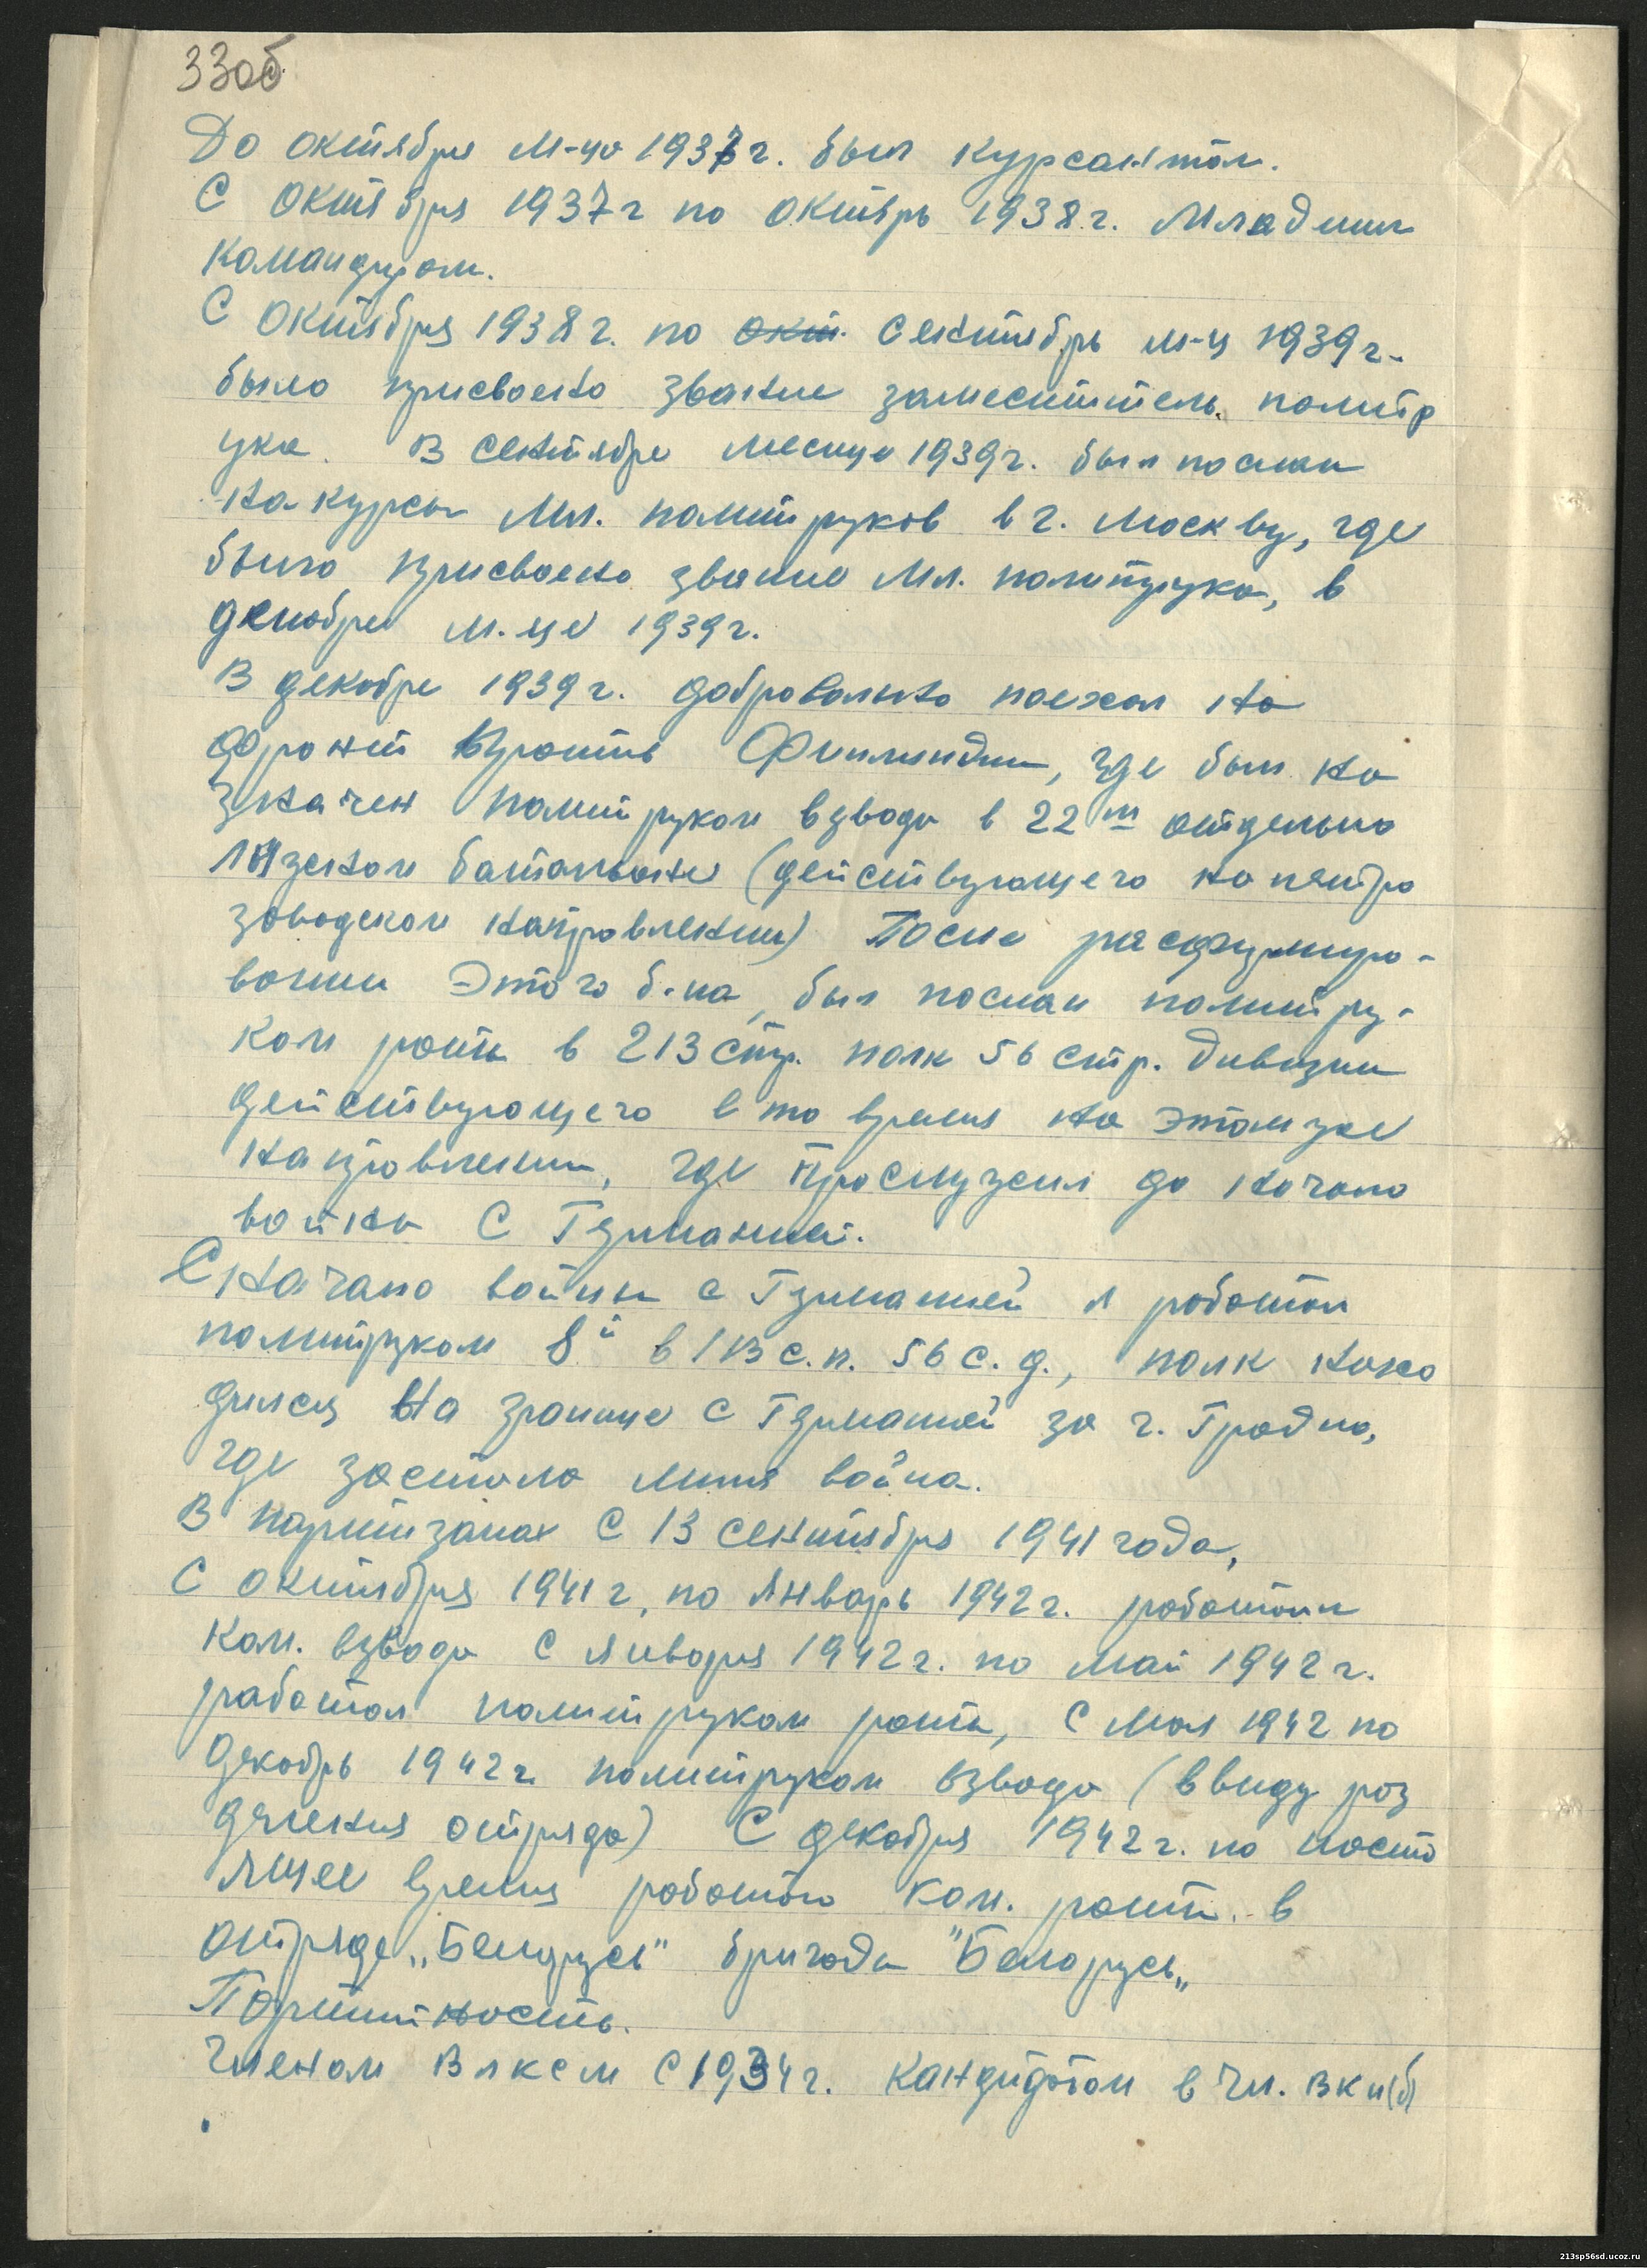 33об
До октября м-ца 1937 г. был курсантом.
С октября 1937 г по октябрь 1938 г. Младшим
командиром.
С октября 1938 г. по окт. сентябрь м-ц 1939 г.
было присвоено звание заместитель политр
ука. В сентябре месяце 1939 г. был послан
на курсы мл. политруков в г. Москву, где
было присвоено звание мл. политрука, в
декабре м-це 1939 г.
В декабре 1939 г. добровольно поехал на
фронт против Финляндии, где был на
значен политруком взвода в 22м отдельно
лыжном батальоне (действующего на петро
заводском направлении) После расформиро-
вании Этого б-на, был послан политру-
ком роты в 213 стр. полк 56 стр. дивизии
действующего в то время на этом же
направлении, где прослужил до начала
войны С Германией.
С начала войны с Германией я работал
политруком 8й в 113 с.п. 56 с.д., полк нахо
дился на границе с Германией за г. Гродно,
где застала меня война.
В партизанах С 13 сентября 1941 года,
С октября 1941 г, по январь 1942 г. работал
ком. взвода С января 1942 г. по май 1942 г.
работал политруком роты, С мая 1942 по
декабрь 1942 г. политруком взвода (ввиду роз
деления отряда) С декабря 1942 г. по насто
ящее время работаю ком. роты в
отряде „Беларусь" бригады "Беларусь„
Партийность.
Членом ВЛКСМ С 1934 г. Кандидатом в Чл. ВКП(б)
213sp56sd.ucoz.ru